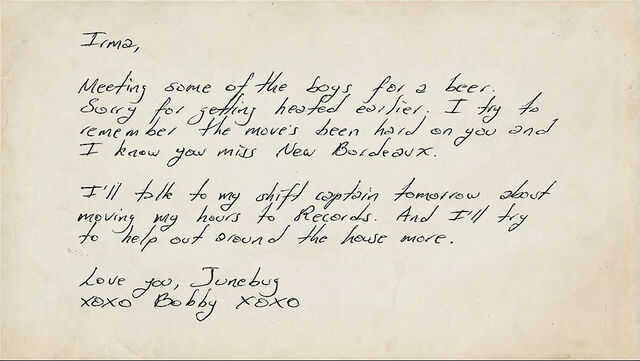 Irma,
Meeting some of the boys for a beer.
Sorry for getting heated earlier. I try to
remember the move's been hard on you and
I know you miss New Bordeaux.
I'll talk to my shift captain tomorrow about
moving my hours to Records. And I'll try
to help out around the house more.
Love you, Junebug
XOXO Bobby XOXO